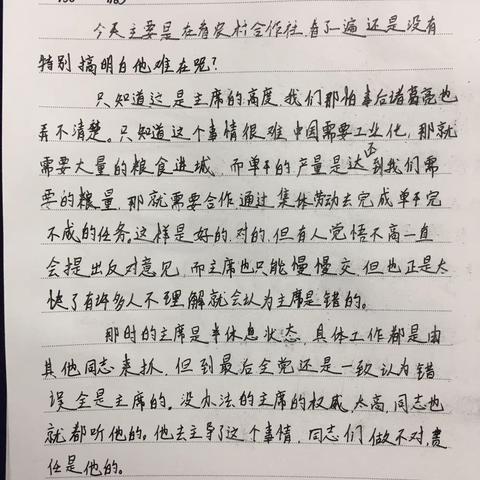 今天主要是在看农村合作社,看了一遍还是没有
特别搞明白他难在呢?
只知道这是主席的高度,我们那怕事后诸葛亮也
弄不清楚。只知道这个事情很难,中国需要工业化,那就
需要大量的粮食进城,而单干的产量是达不到我们需
要的粮量,那就需要合作通过集体劳动去完成单干完
不成的任务。这样是好的,对的,但有人觉悟不高一直
会提出反对意见,而主席也只能慢慢交,但也正是太
快了有许多人不理解就会认为主席是错的。
那时的主席是半休息状态,具体工作都是由
其他同志来抓,但到最后全党还是一致认为错
误全是主席的。没办法的主席的权威太高,同志也
就都听他的。他去主导了这个事情,同志们做不对,责
任是他的。